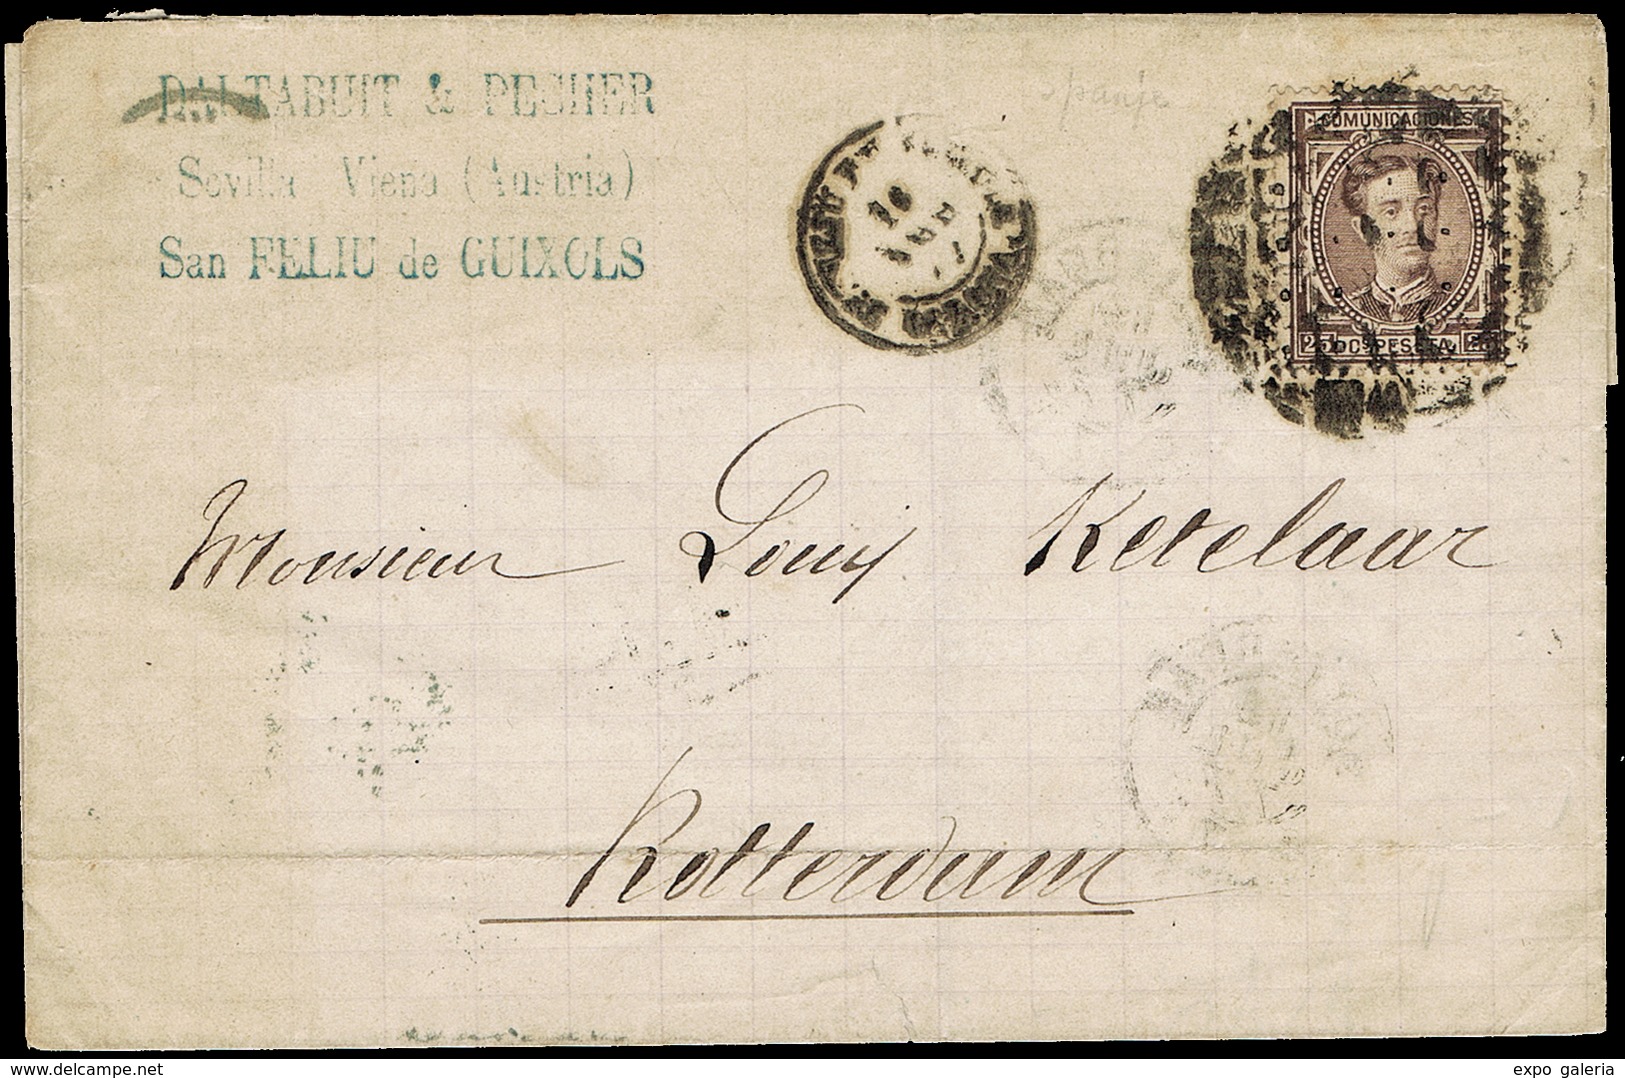 DALTABUIT & PECHER
Sevilla Viena (Austria)
San FELIU de GUIXOLS
Spanje
COMUNICACIONES
25 Cs PESETA 25
Monsieur Louis Ketelaar
Rotterdam
expo galeria